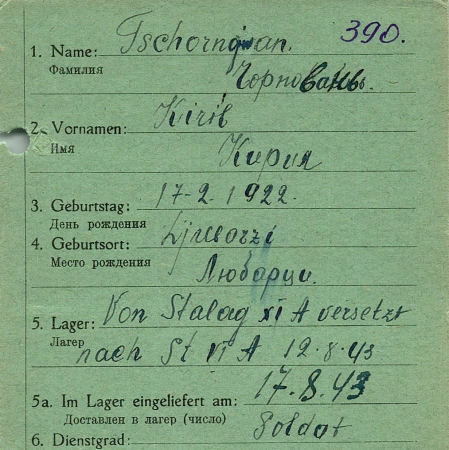 390.
1. Name: Tschorngwan.
Фамилия Чорновань.
2. Vornamen: Kiril
Имя Кирил
3. Geburtstag: 17-2. 1922.
День рождения
4. Geburtsort: Ljubarzi
Место рождения Любарци.
5. Lager: Von Stalag XI A versetzt
Лагер nach St VI A 12.8.43
17.8.43
5a. Im Lager eingeliefert am:
Доставлен в лагер (число)
6. Dienstgrad: Soldat